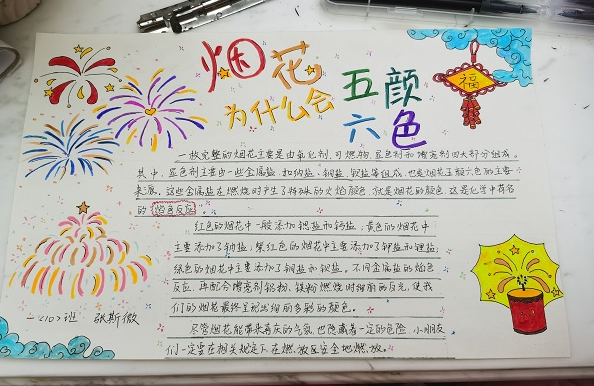 烟花
为什么会
五颜
六色
福
一枚完整的烟花主要是由氧化剂、可燃物、显色剂和增亮剂四大部分组成。
其中，显色剂主要由一些金属盐，如钠盐、铜盐、钡盐等组成，也是烟花五颜六色的主要
来源。这些金属盐在燃烧时产生了特殊的火焰颜色，就是烟花的颜色，这是化学中著名
的焰色反应。
红色的烟花中一般添加锶盐和钙盐，黄色的烟花中
主要添加了钠盐，紫红色的烟花中主要添加了钾盐和锂盐，
绿色的烟花中主要添加了铜盐和钡盐。不同金属盐的焰色
反应，再配合增亮剂铝粉、镁粉燃烧时绚丽的反光，使我
们的烟花最终呈现出绚丽多彩的颜色。
尽管烟花能带来喜庆的气氛，也隐藏着一定的危险，小朋友
们一定要在相关规定下在燃放区安全地燃放。
一〈10〉班 张斯微